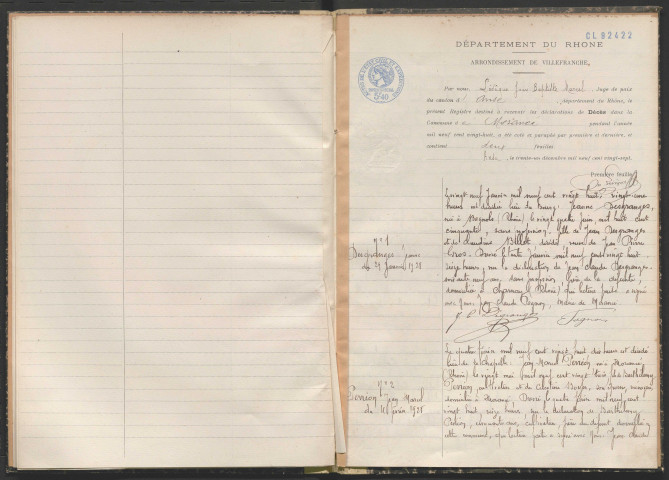 CL 92422
DÉPARTEMENT DU RHONE
ARRONDISSEMENT DE VILLEFRANCHE
Par nous, Jean Baptiste Marcel, Juge de paix
du canton d' Anse, département du Rhône, le
présent Registre destiné à recevoir les déclarations de Décès dans la
Commune de Morancé pendant l'année
mil neuf cent vingt-huit, a été coté et paraphé par première et dernière, et
contient deux feuillets
le trente-un décembre mil neuf cent vingt-sept.
Premier feuillet
Le vingt neuf Janvier mil neuf cent vingt huit, vingt-une
heures est décédée lieu du bourg: Jeanne Desgranges,
née à (Rhône) le vingt quatre Juin, mil huit cent
cinquante, sans profession, fille de Jean Desgranges
et de Claudine décédés, veuve de Jean Pierre
Gros. Dressé le trente Janvier mil neuf cent vingt huit,
seize heures, sur la déclaration de Jean Claude Desgranges,
soixante neuf ans, sans profession, frère de la défunte,
domicilié à Charnay (Rhône) qui lecture faite a signé
avec Nous, Jean Claude Pugnon, Maire de Morancé
N° 1
Desgranges Jeanne
du 29 Janvier 1928
Le quatre Juin mil neuf cent vingt huit dix heures est décédé
lieu de la Chapelle: Jean Marcel Perréon né à Morancé,
(Rhône) le vingt mai mil neuf cent vingt trois, fils de Barthélemy
Perréon, cultivateur et de son épouse,
domiciliés à Morancé. Dressé le quatre Juin mil neuf cent
vingt huit, seize heures, sur la déclaration de Barthélemy
cinquante ans, cultivateur, père du défunt domicilié en
cette commune, qui lecture faite a signé avec Nous Jean Claude
N° 2
Perréon Jean Marcel
du 4 Juin 1928